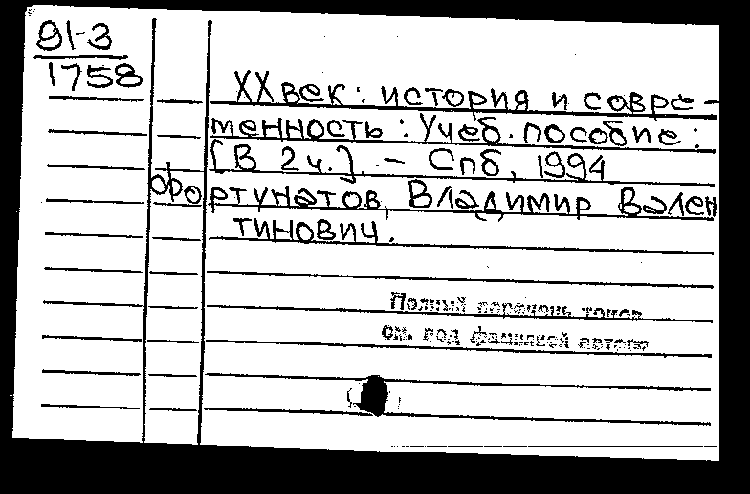 91-3
1758
XX век: история и совре-
менность: Учеб. пособие:
[В 2 ч.]. - Спб, 1994
Фортунатов, Владимир Вален
тинович.
Полный перечень томов
см. под фамилией автора